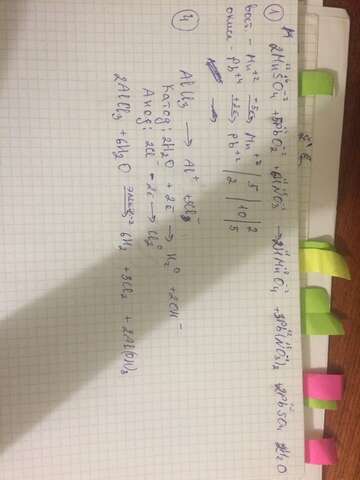 ①
2MnSO₄ + 5PbO₂ + 6HNO₃ → 2HMnO₄ + 3Pb(NO₃)₂ 2PbSO₄ 2H₂O
вост - Mn⁺² -5e→ Mn⁺⁷ | 5 | 10 | 2
окисл - Pb⁺⁴ +2e→ Pb⁺² | 2 | | 5
④
AlCl₃ → Al⁺ + 3Cl⁻
Катод: 2H₂O + 2e → H₂⁰ + 2OH⁻
Анод: 2Cl⁻ - 2e → Cl₂⁰
2AlCl₃ + 6H₂O → 6H₂ + 3Cl₂ + 2Al(OH)₃